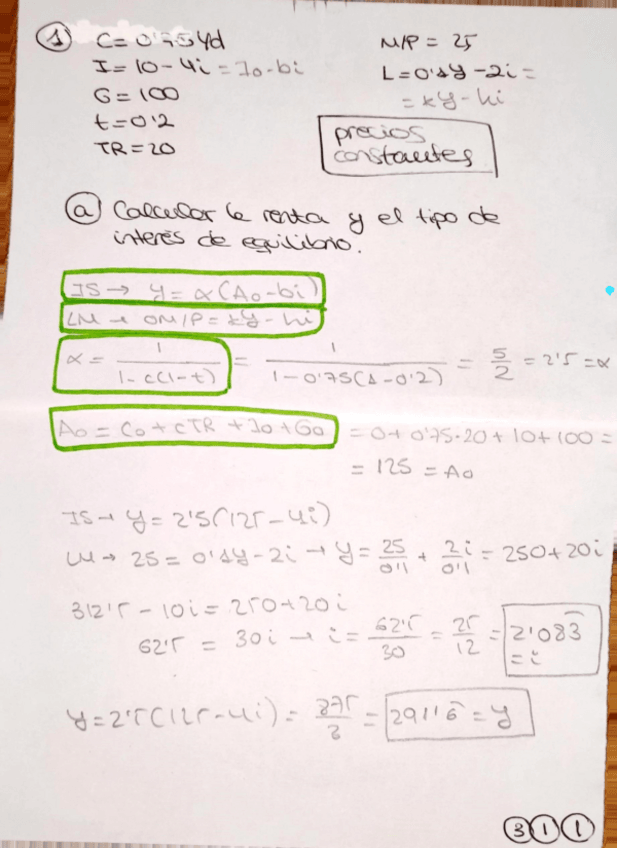 ① C = 0'75Yd M/P = 25
I = 10 - 4i = I0 - bi L = 0'1Y - 2i =
G = 100 = kY - hi
t = 0'2 precios
TR = 20 constantes
ⓐ Calcular la renta y el tipo de
interés de equilibrio.
IS → Y = α(A0 - bi)
LM → 0M/P = kY - hi
α = 1/(1 - c(1 - t)) = 1/(1 - 0'75(1 - 0'2)) = 5/2 = 2'5 = α
A0 = C0 + cTR + I0 + G0 = 0 + 0'75·20 + 10 + 100 =
= 125 = A0
IS → Y = 2'5(125 - 4i)
LM → 25 = 0'1Y - 2i → Y = 25/0'1 + 2i/0'1 = 250 + 20i
312'5 - 10i = 250 + 20i
62'5 = 30i → i = 62'5/30 = 25/12 = 2'083̂
= i
Y = 2'5(125 - 4i) = 875/3 = 291'16̂ = Y
③①①